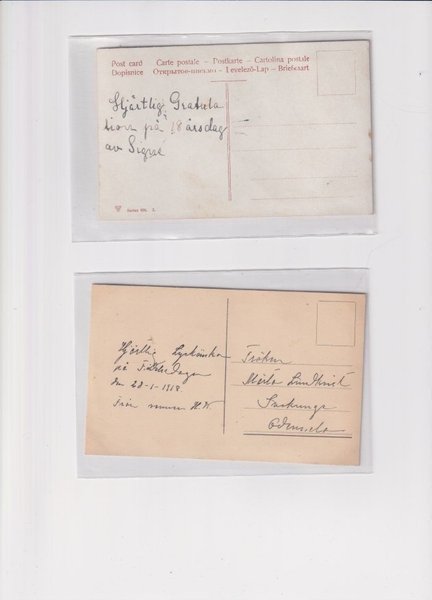 Post card Carte postale – Postkarte – Cartolina postale
Dopisnice Открытое письмо – Levelező-Lap – Briefkaart
Hjärtlig Gratula
tion på 18 årsdag
av Signe
Series
Hjärtlig Lyckönskan
på Födelsedagen
den 23-1-1918
Från
Fröken
Märta Lundkvist